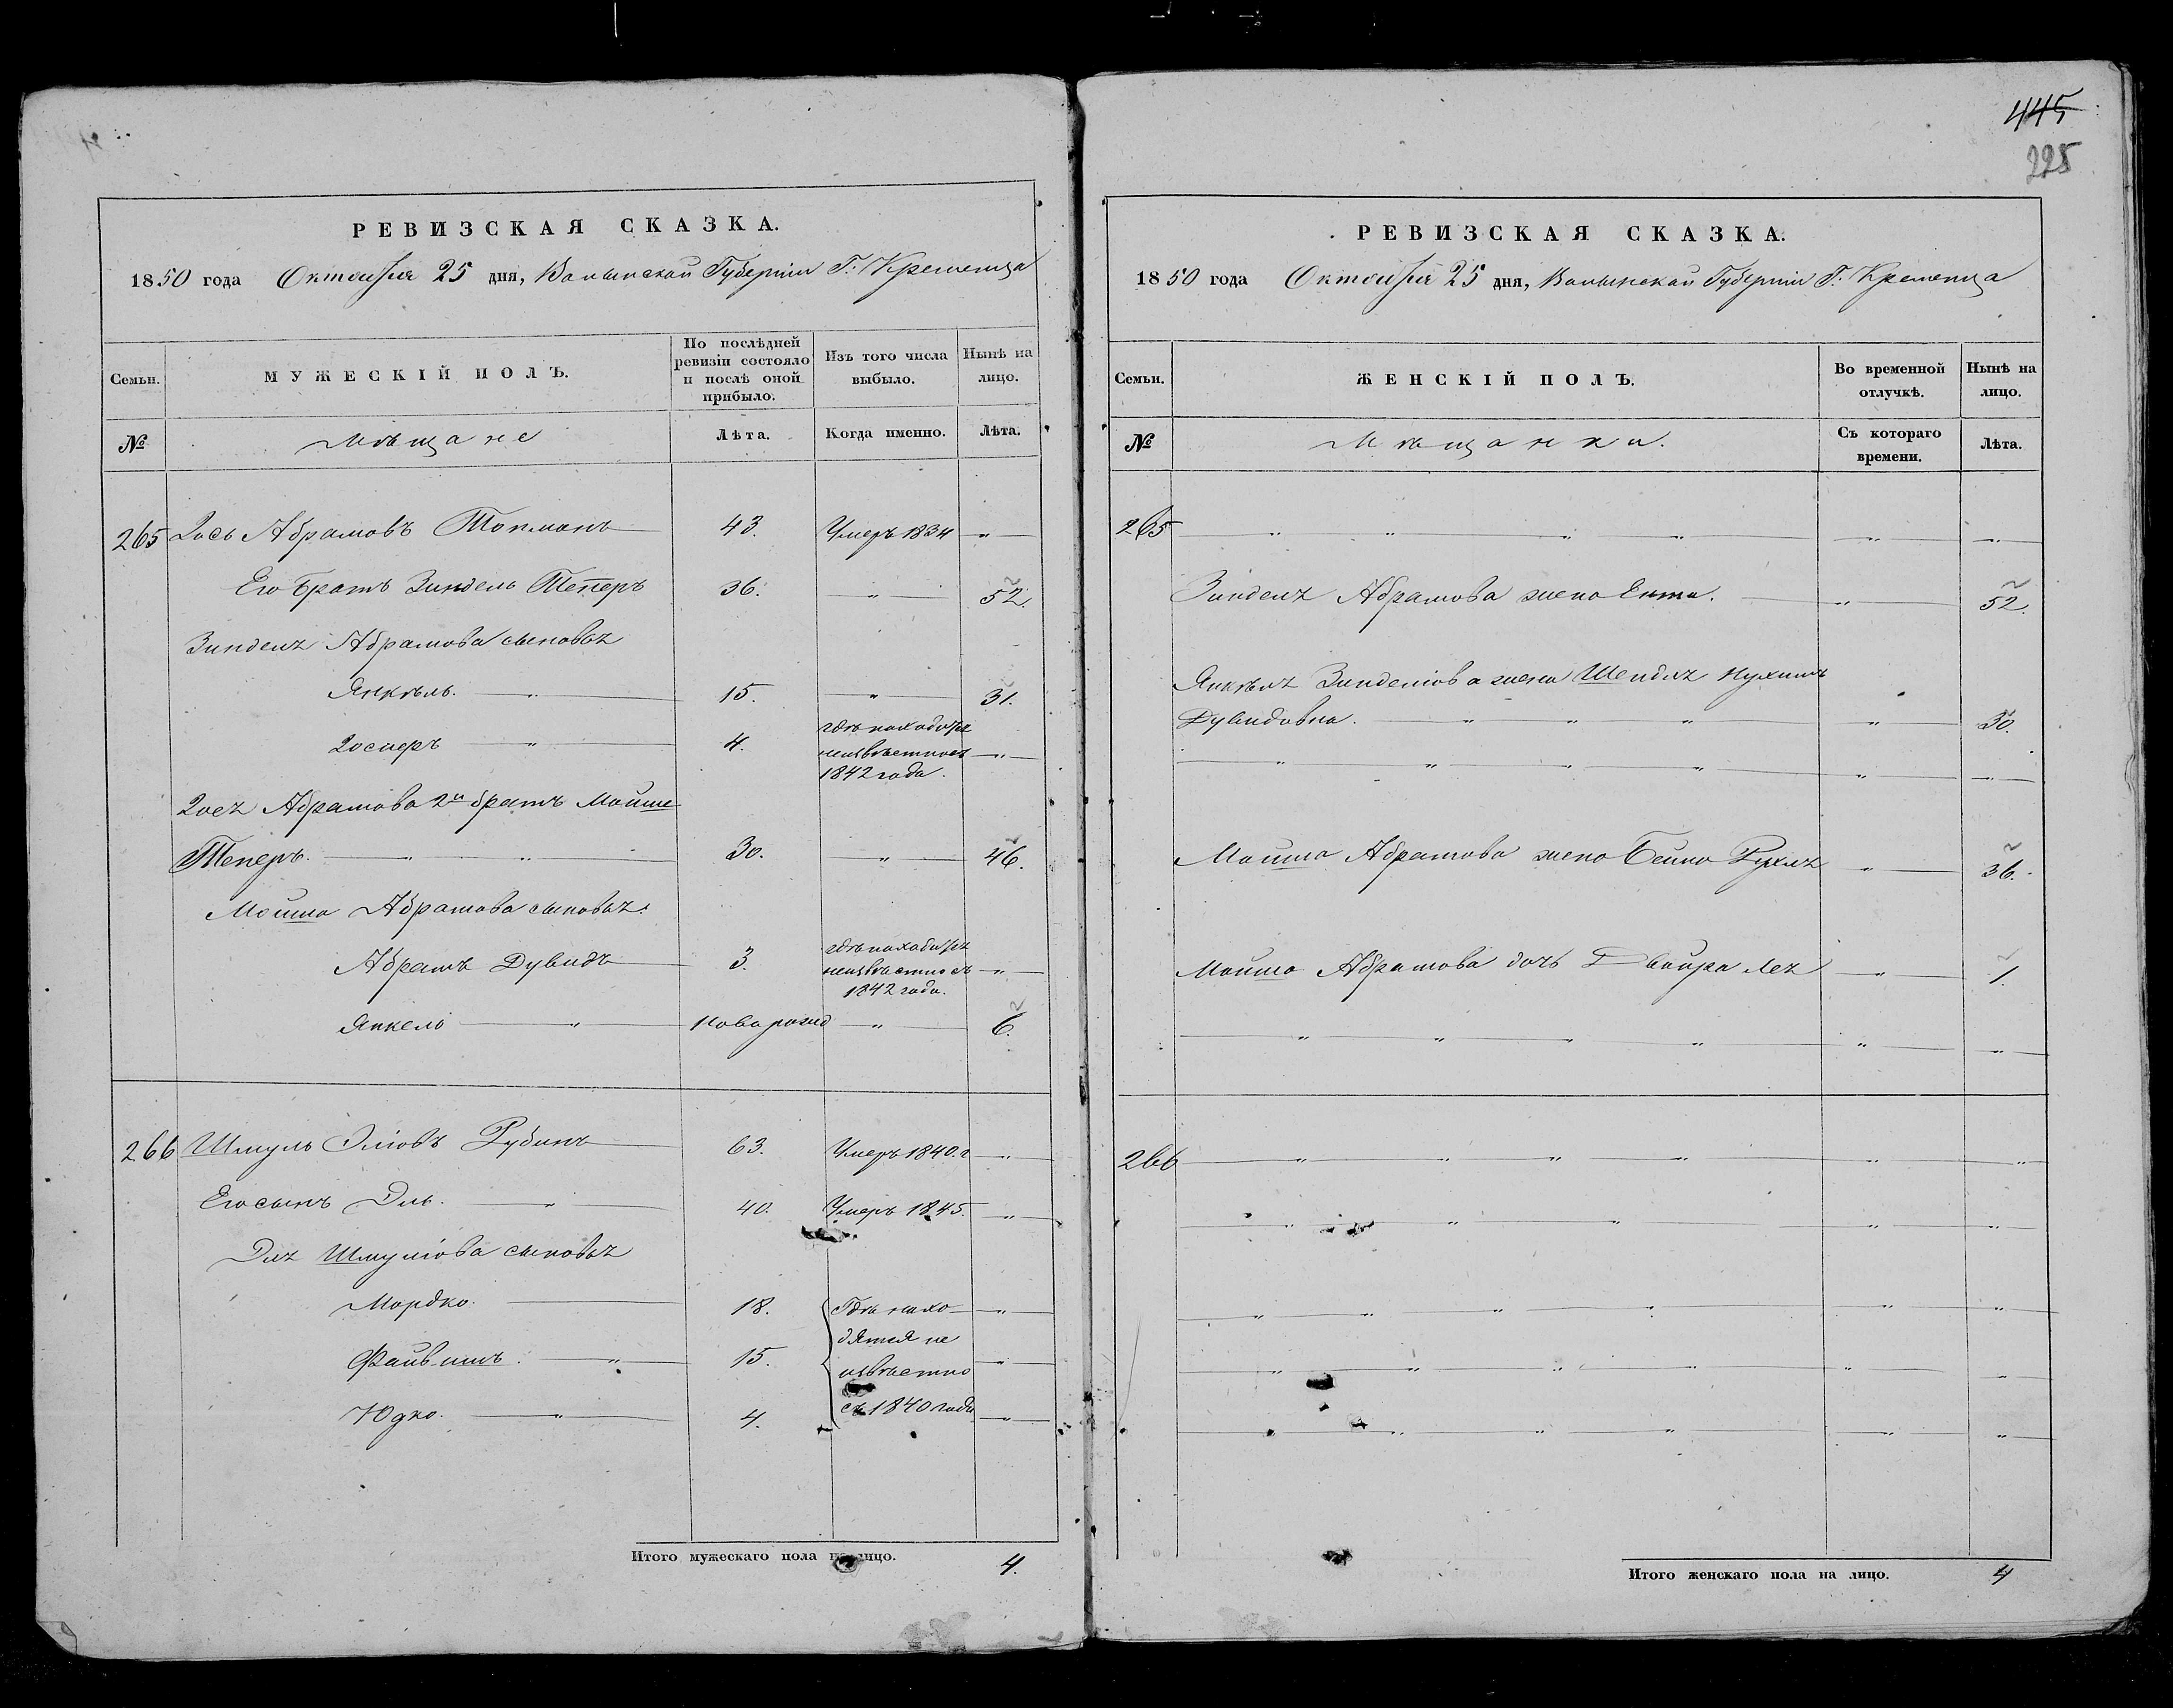 РЕВИЗСКАЯ СКАЗКА.
1850 года Октября 25 дня, Волынской Губерніи Г. Кременца
Семьи.
МУЖЕСКІЙ ПОЛЪ.
По послѣдней ревизіи состояло и послѣ оной прибыло.
Изъ того числа выбыло.
Нынѣ на лицо.
№
Мѣщане
Лѣта.
Когда именно.
Лѣта.
265 Іось Абрамовъ 43. Умеръ 1834 „
Его братъ Зиндель Теперъ 36. „ 52.
Зинделя Абрамова сыновья
Янкѣль. „ 15. „ 31.
Іосперъ „ 4. гдѣ находится
неизвѣстно съ „
1842 года.
Іося Абрамова 2й братъ Мойше
Теперъ. „ „ 30. „ 46.
Мойша Абрамова сыновья:
Абрамъ Дувидъ 3. гдѣ находится
неизвѣстно съ „
1842 года.
Янкель „ новорожд „ 6.
266 Шмуль Эліовъ Рубинъ 63. Умеръ 1840.г „
Его сынъ Эль. „ 40. Умеръ 1845. „
Эля Шмуліова сыновья
Мордко. 18. Гдѣ нахо- „
дятся не
Файвишъ. „ 15. извѣстно „
Юдко. „ 4. съ 1840 года „
Итого мужескаго пола на лицо. 4.
445
225
РЕВИЗСКАЯ СКАЗКА.
1850 года Октября 25 дня, Волынской Губерніи Г. Кременца
Семьи.
ЖЕНСКІЙ ПОЛЪ.
Во временной отлучкѣ.
Нынѣ на лицо.
№
Мѣщанки.
Съ котораго времени.
Лѣта.
265 „ „ „ „ „ „
Зинделя Абрамова жена Ента. „ 52.
Янкѣля Зинделіова жена Шендля Нухимъ
Дувидовна. „ „ „ „ 30.
„ „ „ „ „ „
Мойша Абрамова жена Бейла Рухля „ 36.
Мойша Абрамова дочь Двойра Лея „ 1.
„ „ „ „ „ „
266 „ „ „ „ „ „
„ „ „ „ „ „
„ „ „ „ „ „
„ „ „ „ „ „
„ „ „ „ „ „
Итого женскаго пола на лицо. 4